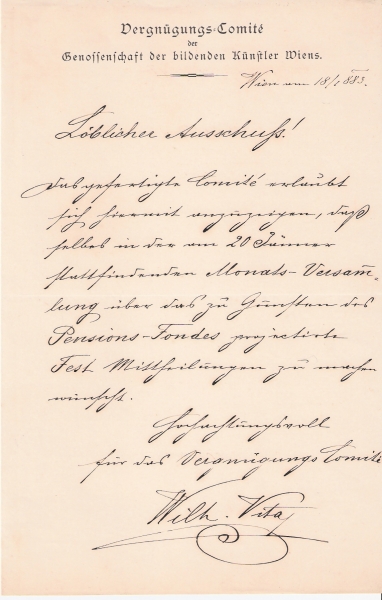 Vergnügungs-Comité
der
Genossenschaft der bildenden Künstler Wiens.
Wien am 18/1 883.
Löblicher Ausschuß!
Das gefertigte Comité erlaubt
sich hiermit anzuzeigen, daß
selbes in der am 20 Jänner
stattfindenden Monats-Versam̅-
lung über das zu Gunsten des
Pensions-Fondes projectirte
Fest Mittheilungen zu machen
wünscht.
Hochachtungsvoll
für das Vergnügungs Comité
Wilh. Vita